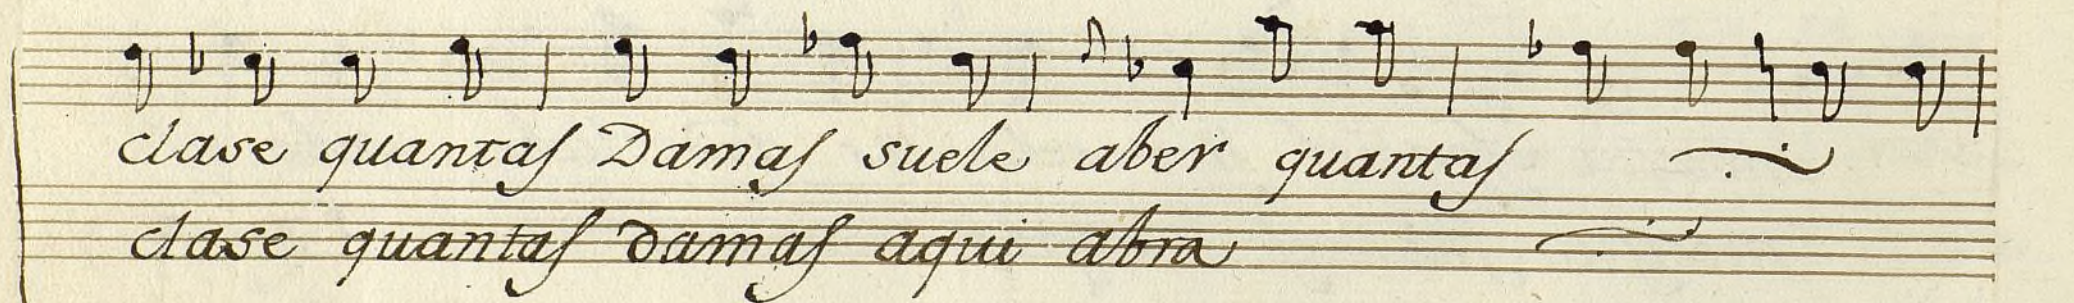 clase quantas Damas suele aber quantas
clase quantas damas aqui abra